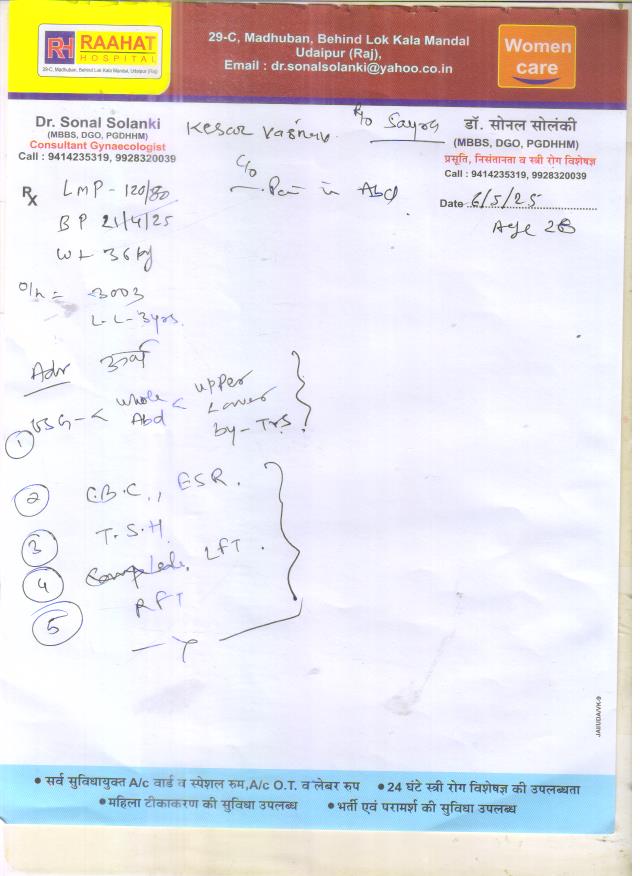 RH RAAHAT
HOSPITAL
29-C, Madhuban, Behind Lok Kala Mandal, Udaipur (Raj)
29-C, Madhuban, Behind Lok Kala Mandal
Udaipur (Raj),
Email : dr.sonalsolanki@yahoo.co.in
Women
care
Dr. Sonal Solanki
(MBBS, DGO, PGDHHM)
Consultant Gynaecologist
Call : 9414235319, 9928320039
Kesar
R/o Sayra
डॉ. सोनल सोलंकी
(MBBS, DGO, PGDHHM)
प्रसूति, निसंतानता व स्त्री रोग विशेषज्ञ
Call : 9414235319, 9928320039
Date 6/5/25
Age 28
Rx LMP - 120/80
BP 21/4/25
Wt 36 kg
C/o
- Pain in Abd
O/H = 3003
L-L-3yrs.
Adv
① USG - < whole Abd < upper
Lower
by - TVS
② C.B.C., ESR.
③ T.S.H.
④ Complete LFT.
⑤ RFT
JAI/UDA/VK-9
• सर्व सुविधायुक्त A/c वार्ड व स्पेशल रुम,A/c O.T. व लेबर रुप • 24 घंटे स्त्री रोग विशेषज्ञ की उपलब्धता
• महिला टीकाकरण की सुविधा उपलब्ध • भर्ती एवं परामर्श की सुविधा उपलब्ध